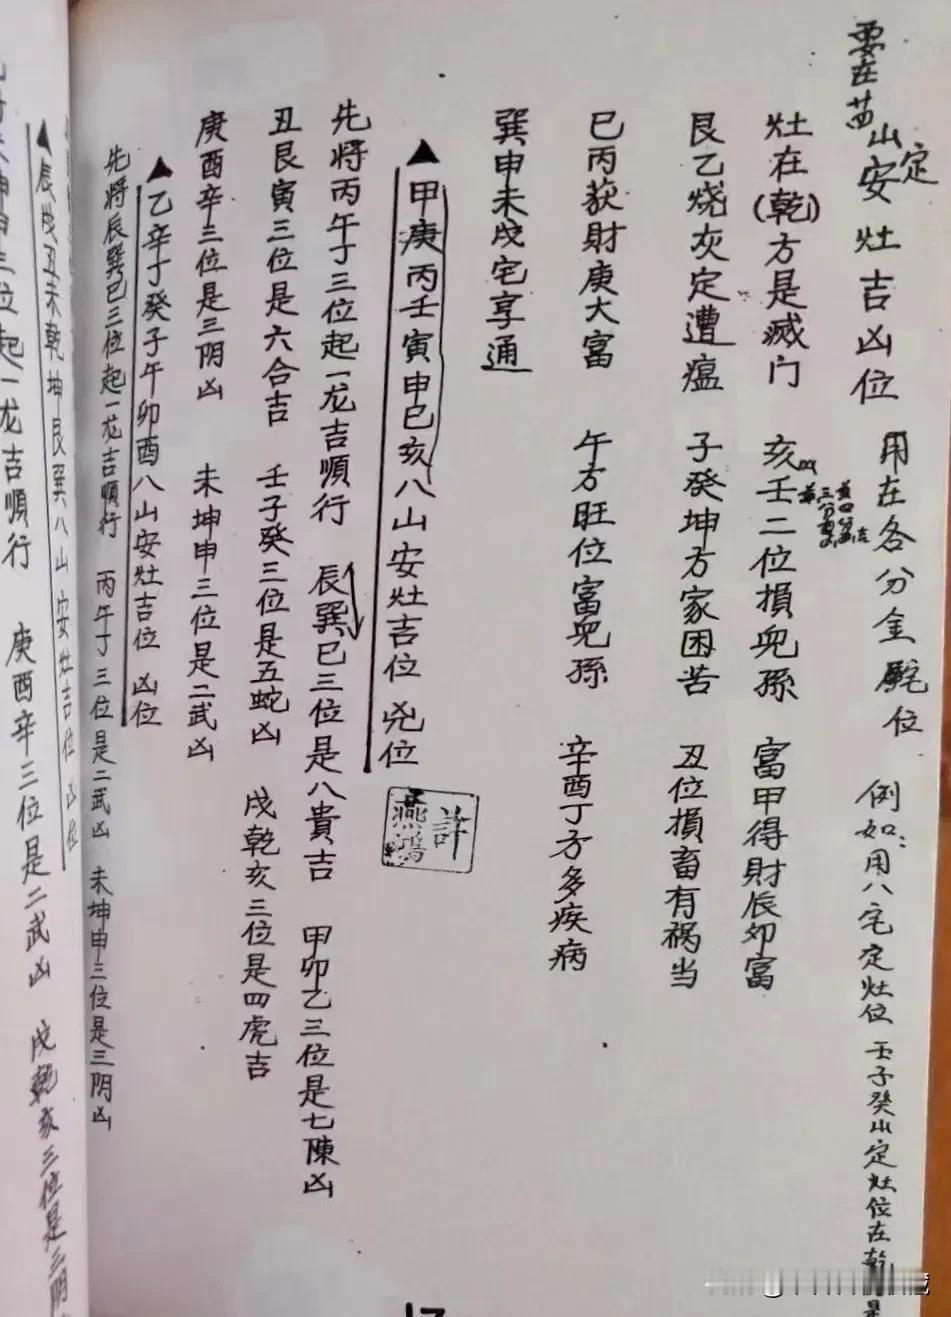 要在茁山定
安灶吉凶位 用在各分金 位 例如:用八宅定灶位 壬子癸山定灶位在乾
灶在(乾)方是滅门 亥壬二位損兒孫 富甲得財辰卯富
艮乙烧灰定遭瘟 子癸坤方家困苦 丑位損畜有祸当
巳丙获財庚大富 午方旺位富兒孫 辛酉丁方多疾病
巽申未戍宅享通
▲甲庚丙壬寅申巳亥八山安灶吉位 兇位
許燕鴻
先将丙午丁三位起一龙吉順行 辰巽巳三位是八貴吉 甲卯乙三位是七陳凶
丑艮寅三位是六合吉 壬子癸三位是五蛇凶 戍乾亥三位是四虎吉
庚酉辛三位是三阴凶 未坤申三位是二武凶
▲乙辛丁癸子午卯酉八山安灶吉位 凶位
先将辰巽巳三位起一龙吉順行 丙午丁三位是二武凶 未坤申三位是三阴凶
▲辰戍丑未乾坤艮巽八山安灶吉位 凶位
三位起一龙吉順行 庚酉辛三位是二武凶 戍乾亥三位是三阴